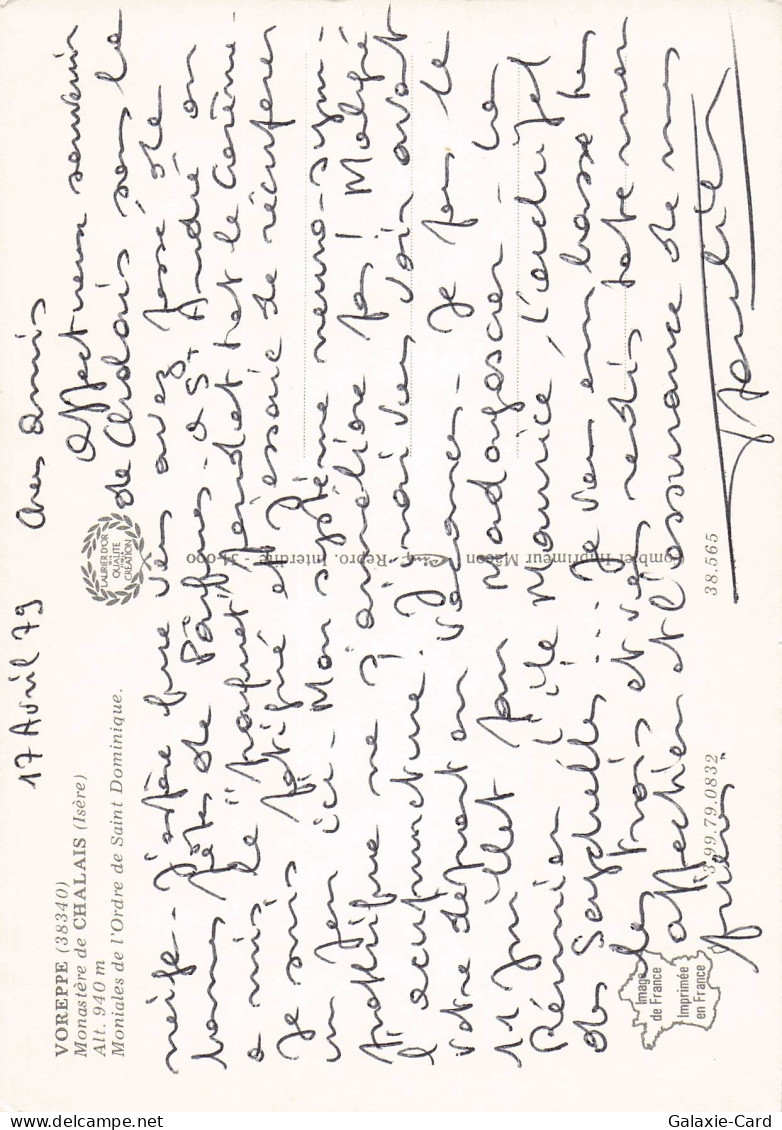 17 Avril 79
Chers amis
Affectueux souvenir
de Chalais sous la
neige - J'espère que vous avez passé de
bonnes fêtes de Pâques - à St André on
a mis le "paquet" pendant tout le Carême -
Je suis fatigué et j'essaie de récupérer
un peu ici - Mon système neuro-sym-
pathique ne s'améliore pas ! Malgré
l'acupuncture ! J'irai vous voir avant
votre départ en vacances - Je pars le
11 Juillet pour Madagascar - La
Réunion, l'île Maurice, l'archipel
des Seychelles ... Je vous embrasse tous
les trois et vous redis toute mon
affection et l'assurance de mes
prières
VOREPPE (38340)
Monastère de CHALAIS (Isère)
Alt. 940 m
Moniales de l'Ordre de Saint Dominique.
LAURIER D'OR
QUALITÉ
CRÉATION
Combier Imprimeur Mâcon - Repro. Interdite -
38.565
3.99.79.0832
Image de France
Imprimée en France
Galaxie-Card